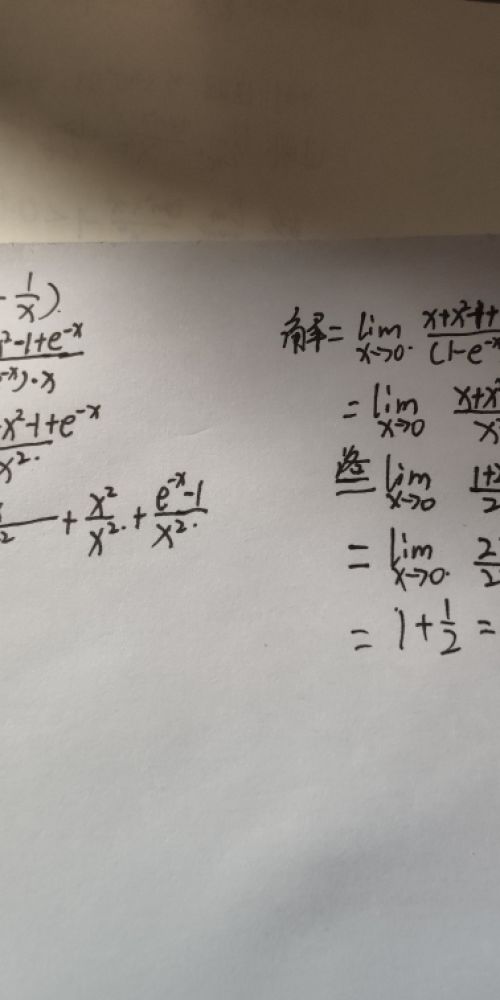 - 1/x).
x²-1+e^-x
^-x)·x
x²-1+e^-x
x².
+ x²/x². + (e^-x -1)/x².
解= lim x→0· x+x²-1+
(1-e^-x
= lim x→0 x+x²
x²
洛 = lim x→0 1+2
2
= lim x→0· 2
2
= 1+1/2 =